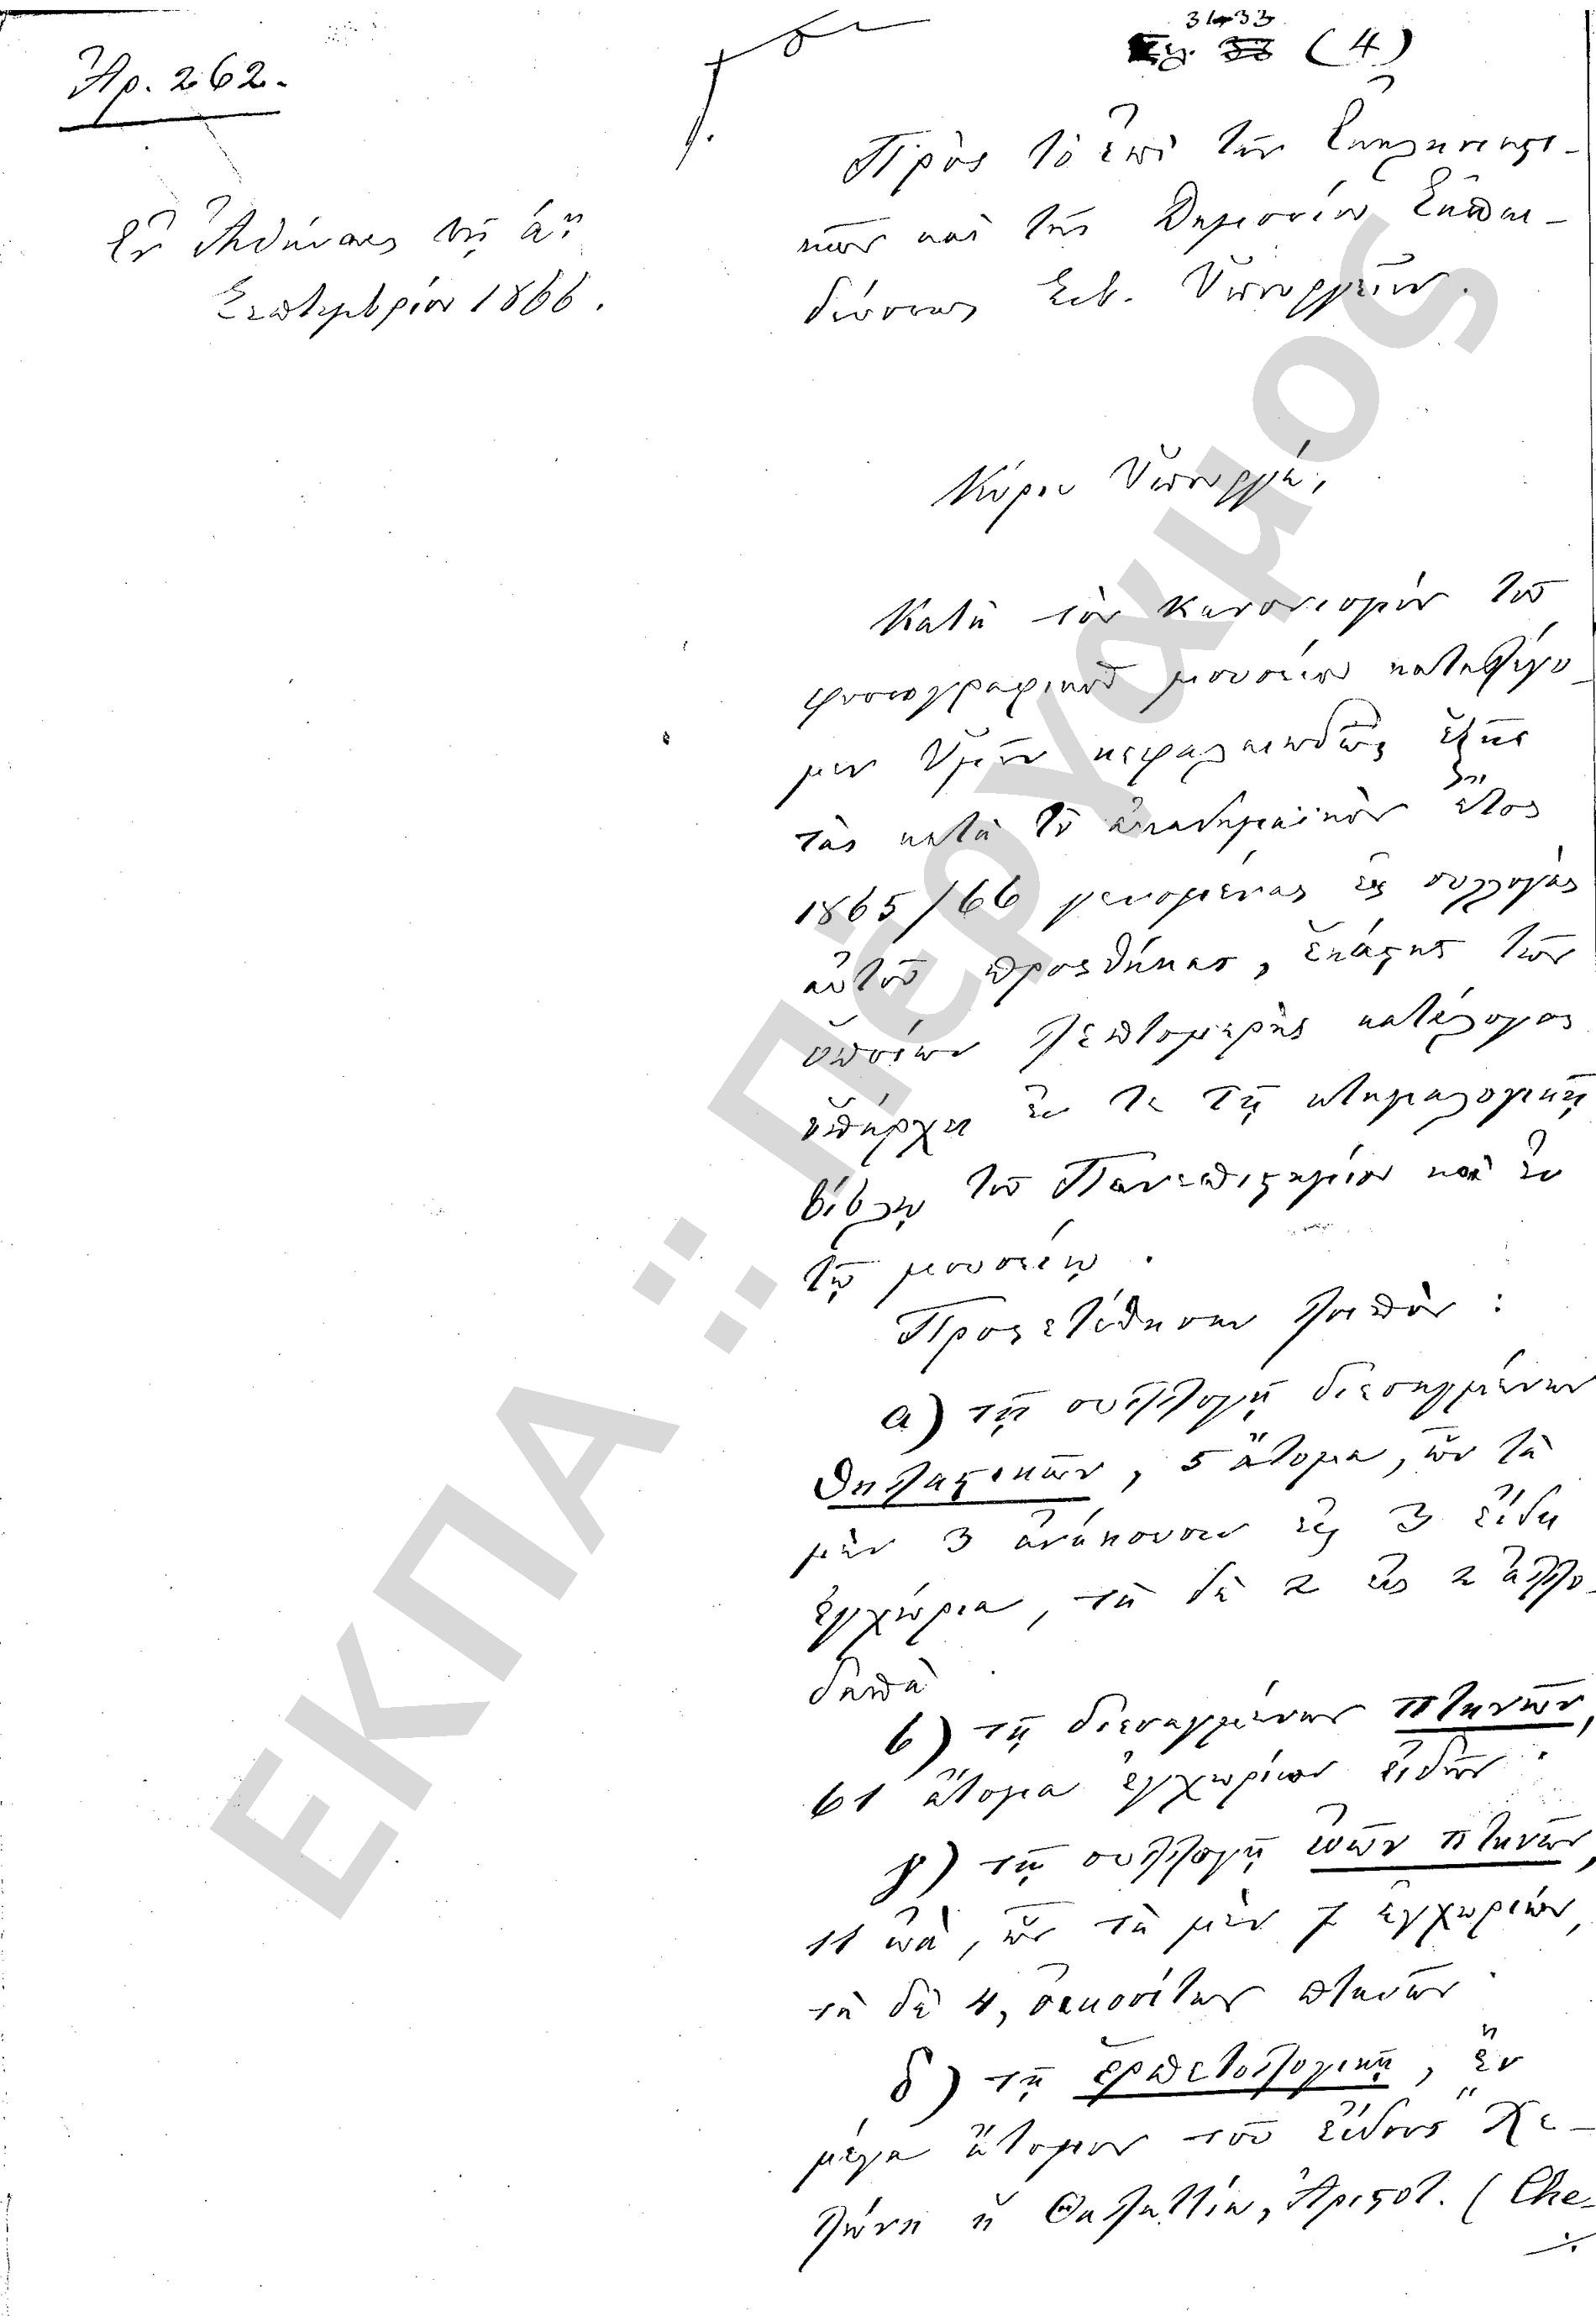 Ἀρ. 262.
3 33
(4)
Ἐν Ἀθήναις τῇ άῃ
Σεπτεμβρίου 1866.
Πρὸς τὸ ἐπὶ τῶν Ἐκκλησιαστι-
κῶν καὶ τῆς Δημοσίου Ἐκπαι-
δεύσεως Σεβ. Ὑπουργεῖον.
Κύριε Ὑπουργέ,
Κατὰ τὸν κανονισμὸν τοῦ
φυσιογραφικοῦ μουσείου
μεν Ὑμῖν κεφαλαιωδῶς ἑξῆς
τὰς κατὰ τὸ ἀκαδημαϊκὸν ἔτος
1865/66 γενομένας εἰς συλλογὰς
αὐτοῦ προςθήκας, ἑκάστης τῶν
ὁποίων λεπτομερὴς κατάλογος
ὑπάρχει ἔν τε τῇ κτηματολογικῇ
βίβλῳ τοῦ Πανεπιστημίου καὶ ἐν
τῷ μουσείῳ.
Προςετέθησαν λοιπὸν:
α) τῇ συλλογῇ διεσαγμένων
θηλαστικῶν, 5 ἄτομα, ὧν τὰ
μὲν 3 ἀνήκουσιν εἰς 3 εἴδη
ἐγχώρια, τὰ δὲ 2 εἰς 2 ἀλλο-
δαπὰ·
β) τῇ διεσαγμένων πτηνῶν,
61 ἄτομα ἐγχωρίων εἰδῶν·
γ) τῇ συλλογῇ ὠῶν πτηνῶν,
11 ὠὰ, ὧν τὰ μὲν 7 ἐγχωρίων,
τὰ δὲ 4, οἰκοσίτων πτηνῶν·
δ) τῇ ἑρπετολογικῇ, ἓν
μέγα ἄτομον τοῦ εἴδους "Χε-
λώνη ἡ Θαλαττία," Ἀριστοτ. (Che-
·/·
ΕΚΠΑ :: Πέργαμος